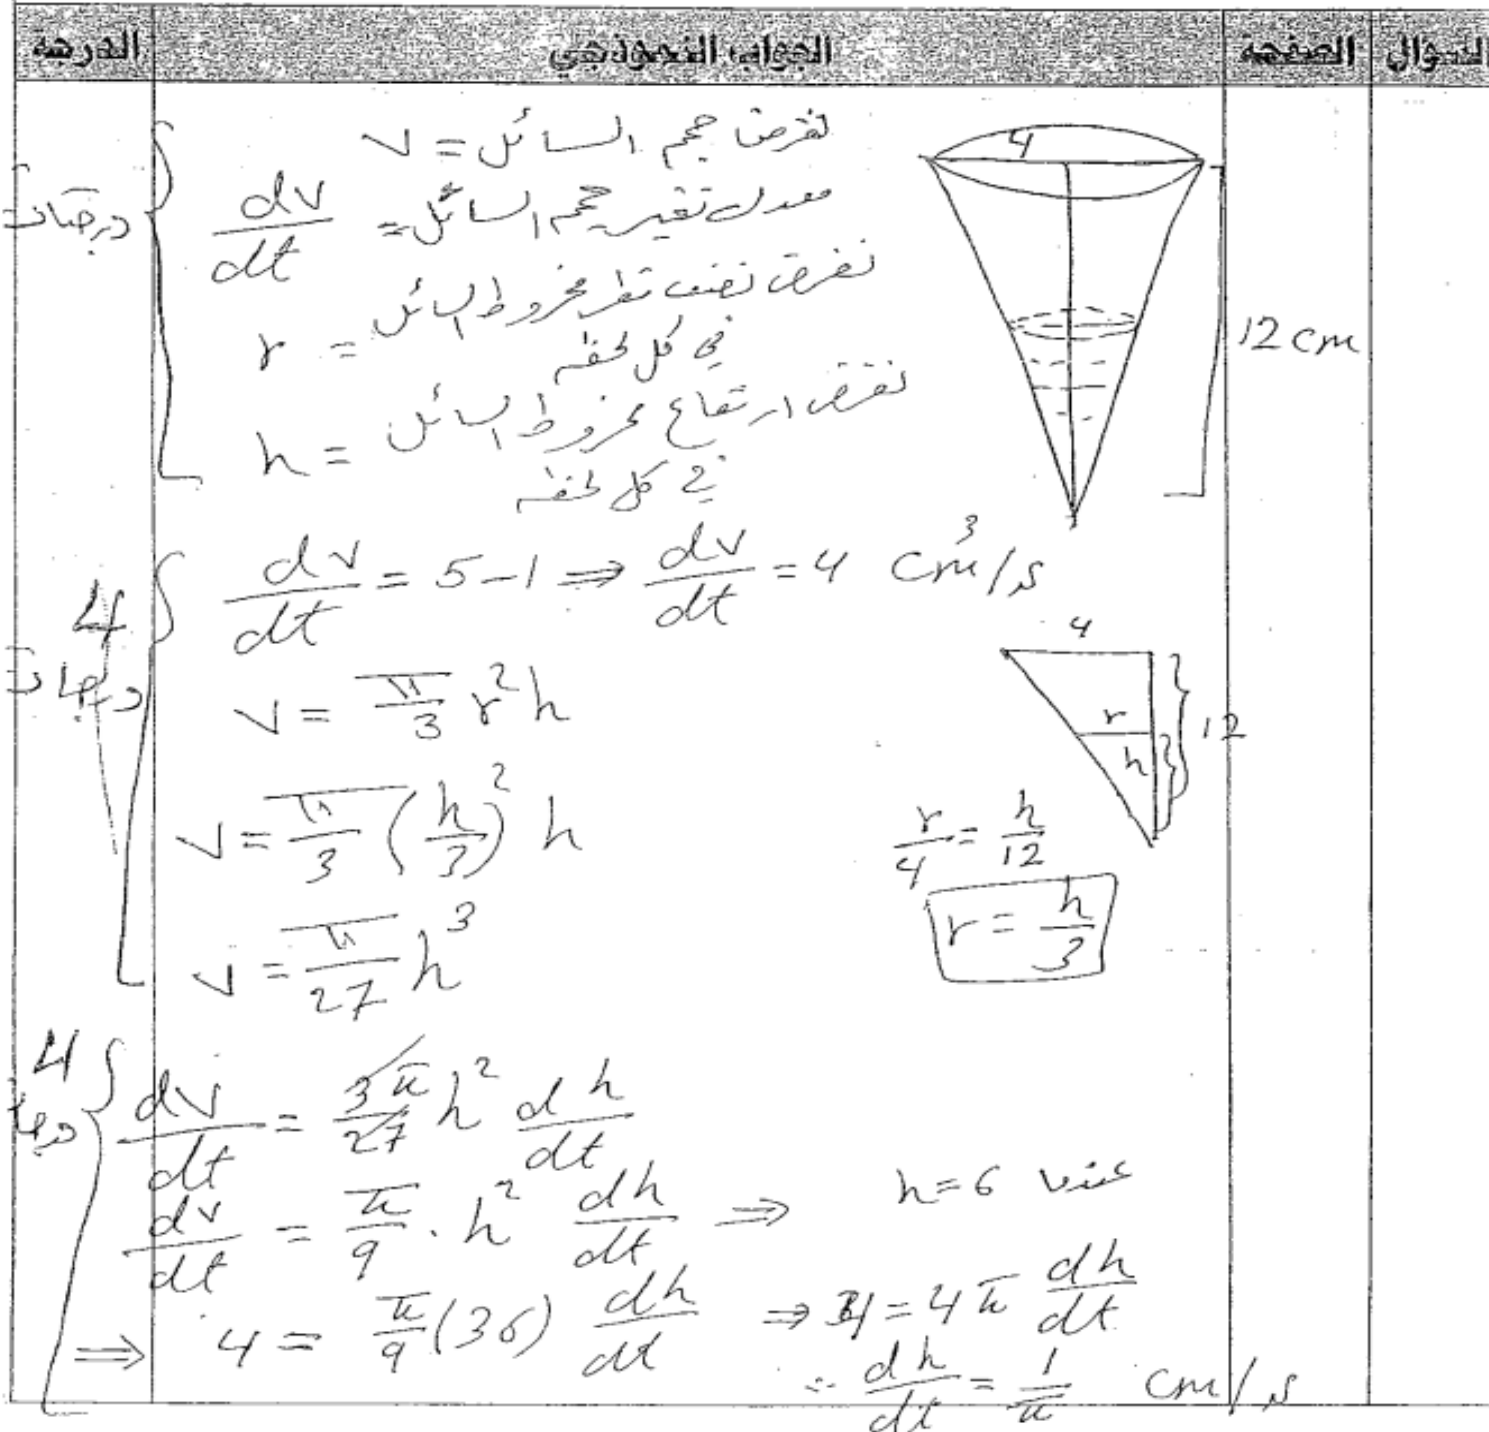 السؤال الصفحة الجواب النموذجي الدرجة
نفرض حجم السائل = V
معدل تغير حجم السائل = dv/dt
نفرض نصف قطر مخروط السائل
في كل لحظة = r
نفرض ارتفاع مخروط السائل
في كل لحظة = h
درجتان
4
12 cm
dv/dt = 5-1 ⇒ dv/dt = 4 cm³/s
4 درجات
V = π/3 r²h
V = π/3 (h/3)² h
V = π/27 h³
4
r
h
12
r/4 = h/12
r = h/3
4
dv/dt = 3π/27 h² dh/dt
dv/dt = π/9 . h² dh/dt ⇒ عند h=6
⇒ 4 = π/9 (36) dh/dt ⇒ 4 = 4π dh/dt
∴ dh/dt = 1/π cm/s